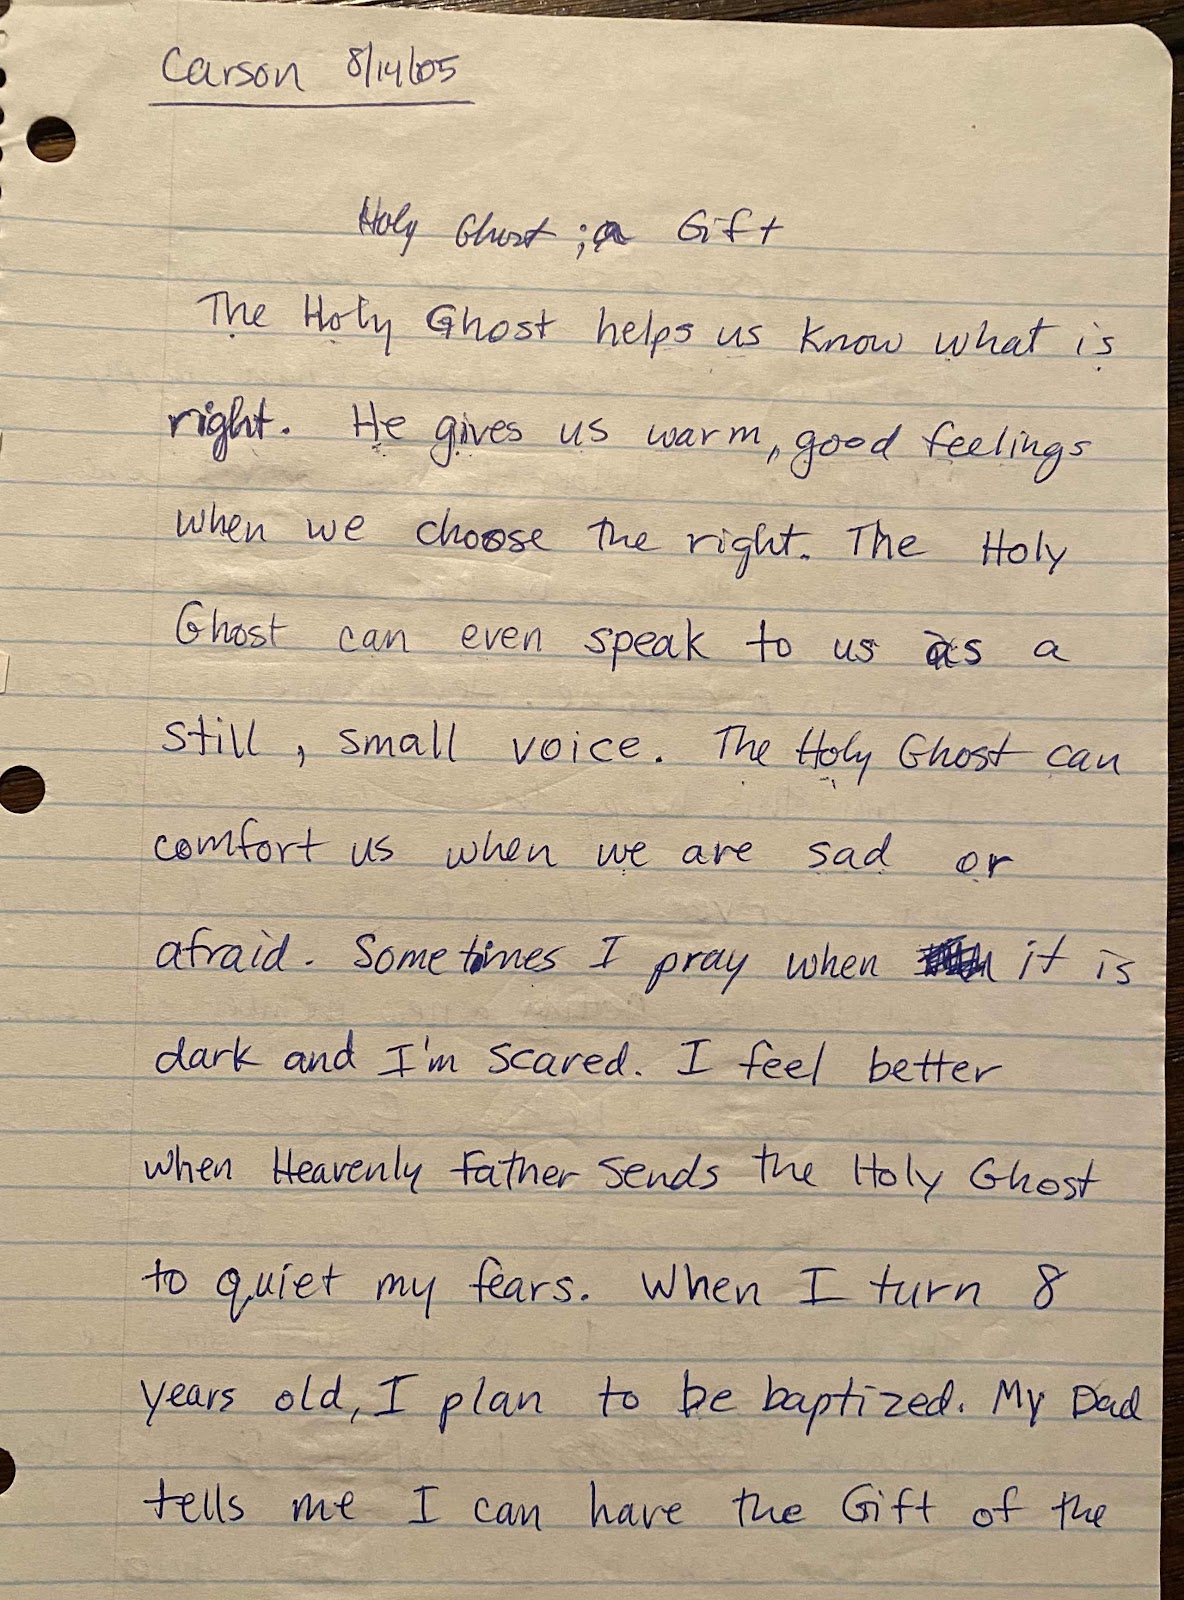 Carson 8/14/05
Holy Ghost ; a Gift
The Holy Ghost helps us know what is
right. He gives us warm, good feelings
when we choose the right. The Holy
Ghost can even speak to us as a
still, small voice. The Holy Ghost can
comfort us when we are sad or
afraid. Sometimes I pray when it is
dark and I'm scared. I feel better
when Heavenly Father sends the Holy Ghost
to quiet my fears. When I turn 8
years old, I plan to be baptized. My Dad
tells me I can have the Gift of the